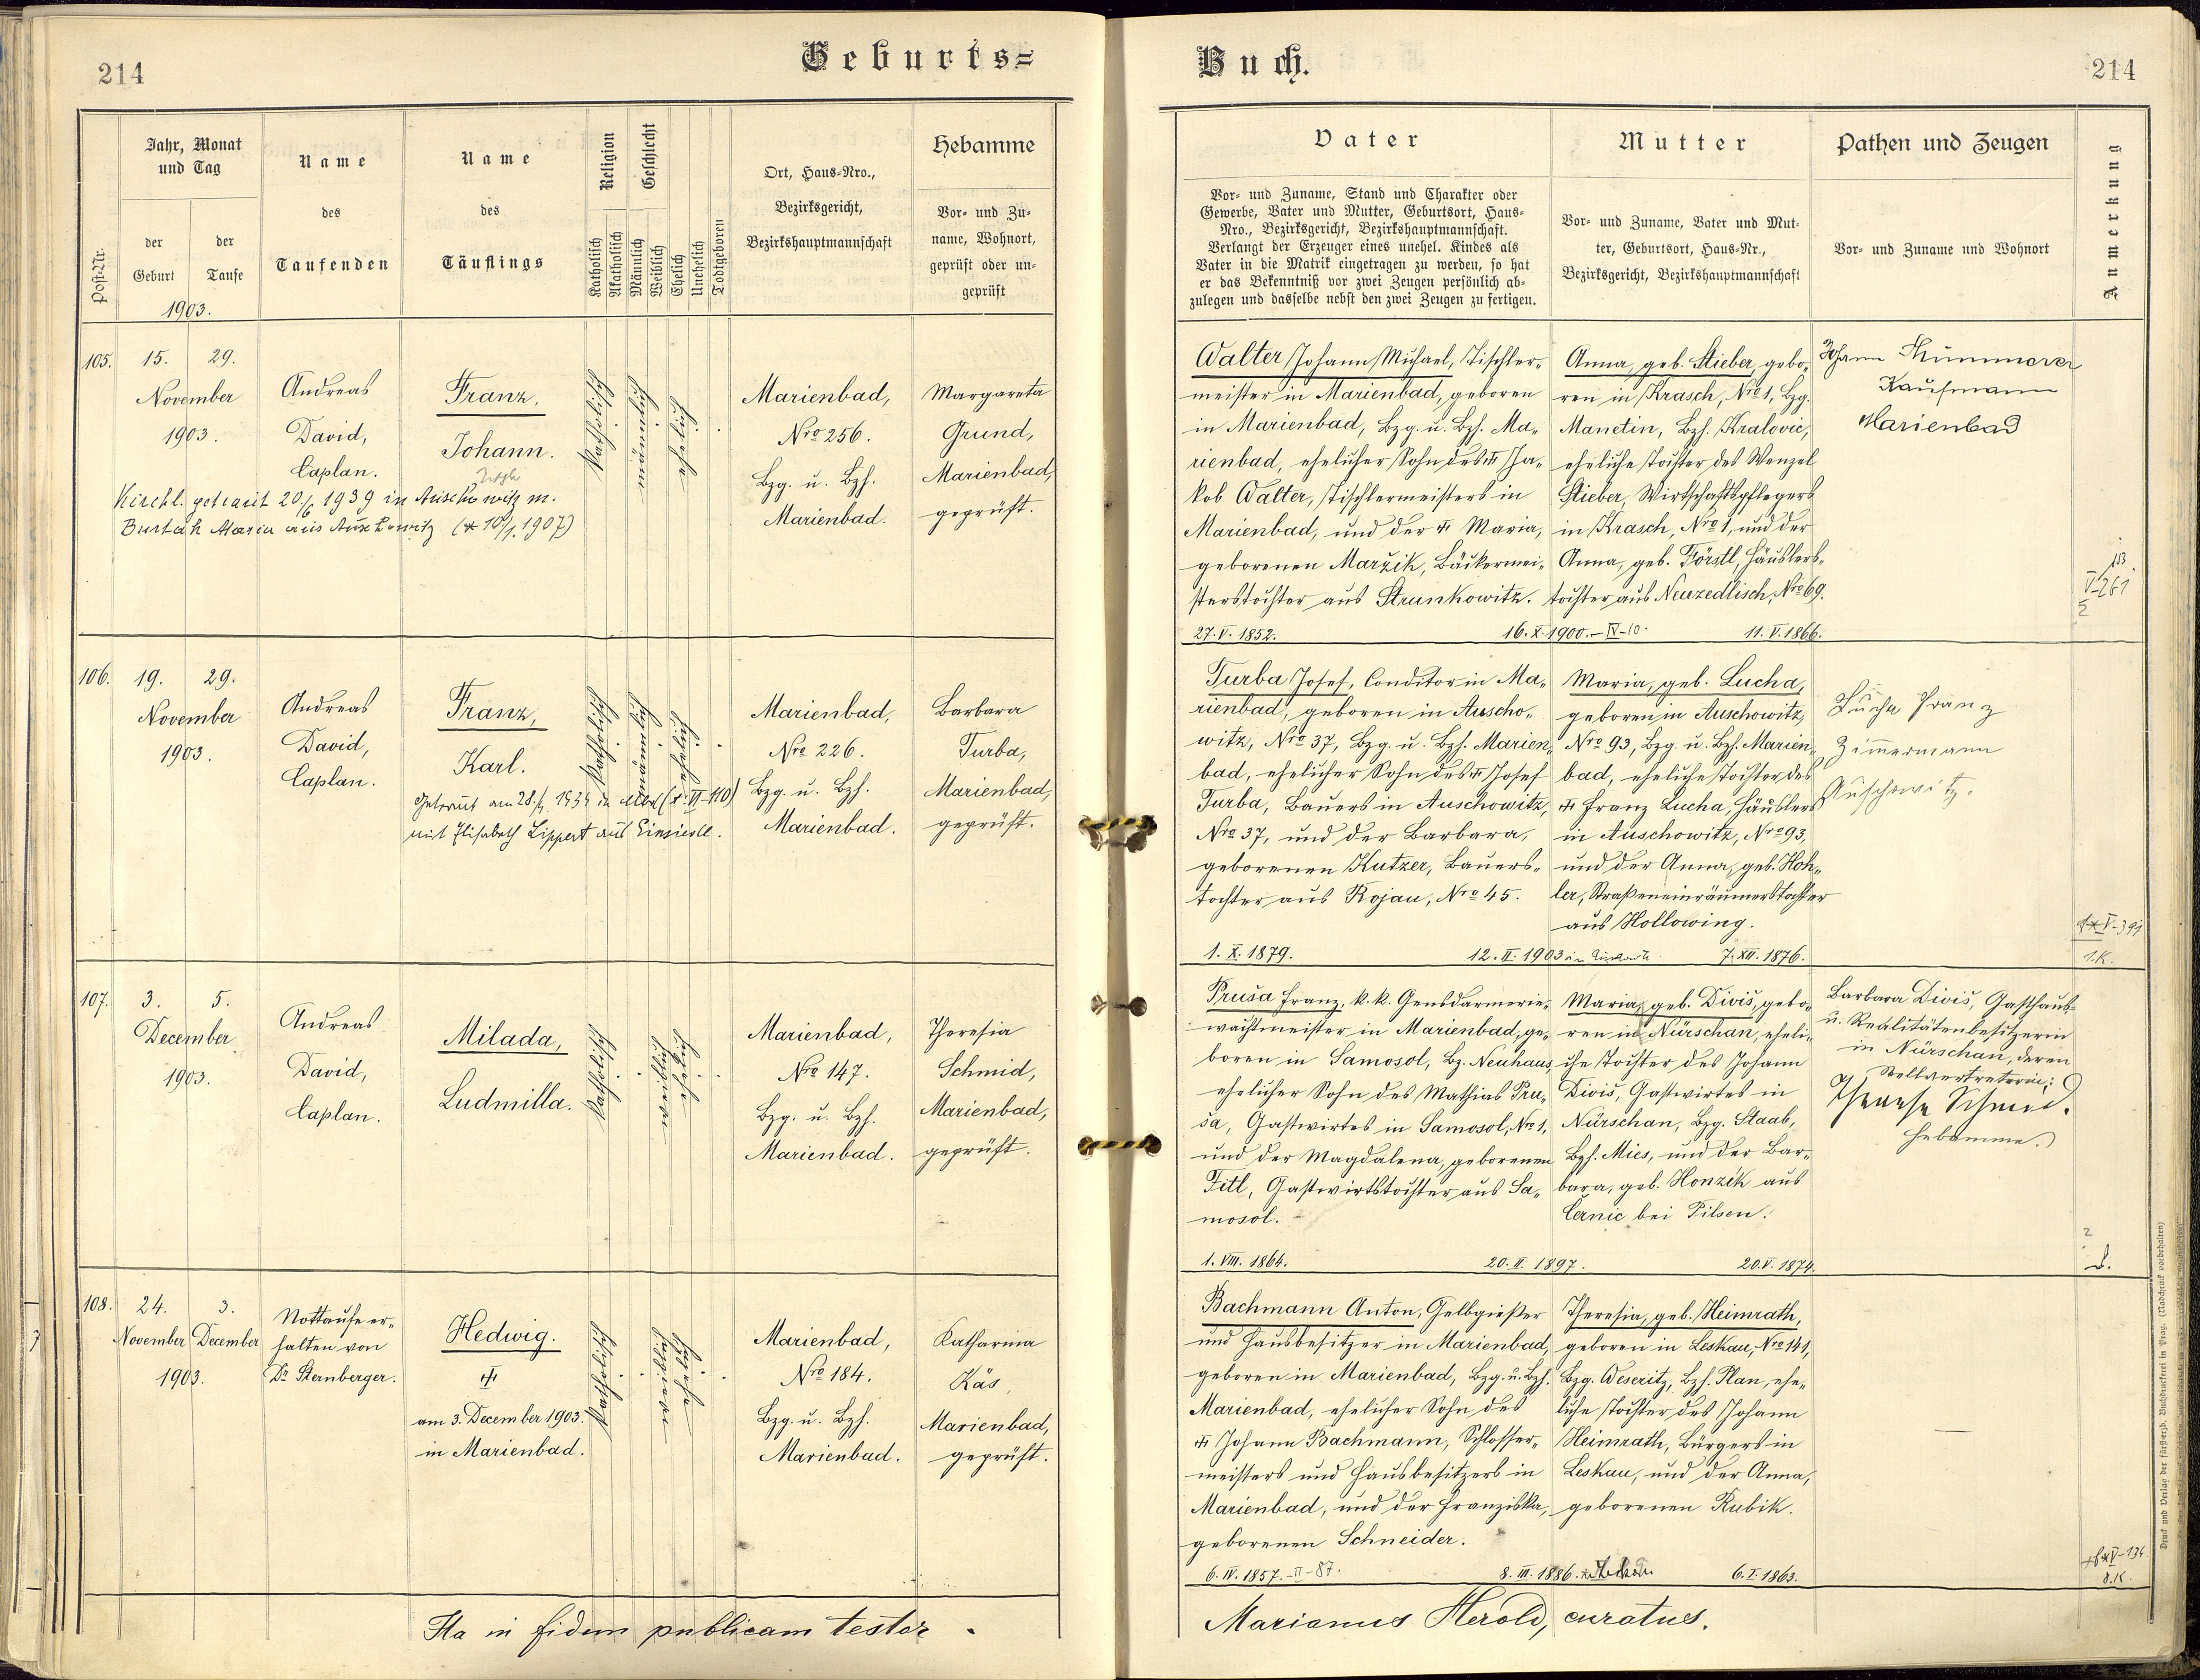 214
Geburts=
Jahr, Monat
und Tag
Name
Name
Religion
Geschlecht
Hebamme
Post-Nr.
der
Geburt
der
Taufe
des
Taufenden
des
Täuflings
Katholisch
Akatholisch
Männlich
Weiblich
Ehelich
Unehelich
Todtgeboren
Ort, Haus-Nro.,
Bezirksgericht,
Bezirkshauptmannschaft
Vor- und Zu-
name, Wohnort,
geprüft oder un-
geprüft
1903.
105.
15.
29.
November
1903.
Andreas
David,
Caplan.
Franz,
Johann.
katholisch
männlich
ehelich
Marienbad,
Nro 256.
Bzg. u. Bzh.
Marienbad.
Margareta
Grund,
Marienbad,
geprüft.
Kirchl. getraut 20/6 1939 in Auschowitz m.
Burtak Maria aus Auschowitz (* 10/1. 1907)
106.
19.
29.
November
1903.
Andreas
David,
Caplan.
Franz,
Karl.
katholisch
männlich
ehelich
Marienbad,
Nro 226.
Bzg. u. Bzh.
Marienbad.
Barbara
Turba,
Marienbad,
geprüft.
Getraut am 28. 1934 in (VI-110)
mit Elisabeth Lippert aus Einsiedl.
107.
3.
5.
December
1903.
Andreas
David,
Caplan.
Milada,
Ludmilla.
katholisch
weiblich
ehelich
Marienbad,
Nro 147.
Bzg. u. Bzh.
Marienbad.
Theresia
Schmid,
Marienbad,
geprüft.
108.
24.
3.
November
December
1903.
Nottaufe er-
halten von
Dr Sternberger.
Hedwig.
am 3. December 1903.
in Marienbad.
katholisch
weiblich
ehelich
Marienbad,
Nro 184.
Bzg. u. Bzh.
Marienbad.
Katharina
Käs,
Marienbad,
geprüft.
Ita in fidem publicam testor.
Buch.
214
Vater
Mutter
Pathen und Zeugen
Anmerkung
Vor- und Zuname, Stand und Charakter oder
Gewerbe, Vater und Mutter, Geburtsort, Haus-
Nro., Bezirksgericht, Bezirkshauptmannschaft.
Verlangt der Erzeuger eines unehel. Kindes als
Vater in die Matrik eingetragen zu werden, so hat
er das Bekenntniß vor zwei Zeugen persönlich ab-
zulegen und dasselbe nebst den zwei Zeugen zu fertigen.
Vor- und Zuname, Vater und Mut-
ter, Geburtsort, Haus-Nr.,
Bezirksgericht, Bezirkshauptmannschaft
Vor- und Zuname und Wohnort
Walter Johann Michael, Tischler-
meister in Marienbad, geboren
in Marienbad, Bzg. u. Bzh. Ma-
rienbad, ehelicher Sohn des Ja-
kob Walter, Tischlermeisters in
Marienbad, und der Maria,
geborenen Maržik, Bäckermei-
sterstochter aus Strunkowitz.
27. V. 1852.
16. X. 1900.-IV-10.
Anna, geb. Stieber, gebo-
ren in Krasch, Nro 1, Bzg.
Manetin, Bzh. Kralovic,
eheliche Tochter des Wenzel
Stieber, Wirtschaftspflegers
in Krasch, Nro 1, und der
Anna, geb. Förstl, Häuslers-
tochter aus Neuzedlisch, Nro 69.
11. V. 1866.
Johann
Kaufmann
Marienbad
V-261
Turba Josef, Conditor in Ma-
rienbad, geboren in Auscho-
witz, Nro 37, Bzg. u. Bzh. Marien-
bad, ehelicher Sohn des Josef
Turba, Bauers in Auschowitz,
Nro 37, und der Barbara,
geborenen Kutzer, Bauers-
tochter aus Rojau, Nro 45.
1. X. 1879.
12. II. 1903
Maria, geb. Lucha,
geboren in Auschowitz,
Nro 93, Bzg. u. Bzh. Marien-
bad, eheliche Tochter des
Franz Lucha, Häuslers
in Auschowitz, Nro 93,
und der Anna, geb. Hoh-
ler, Straßeneinräumerstochter
aus Hollowing.
7. XII. 1876.
Lucha Franz
Zimmermann
Auschowitz.
V-391
1.K.
Pruša Franz, k.k. Gensdarmerie-
wachtmeister in Marienbad, ge-
boren in Samosol, Bz. Neuhaus,
ehelicher Sohn des Mathias Pru-
ša, Gastwirtes in Samosol, Nro 1,
und der Magdalena, geborenen
Fitl, Gastwirtstochter aus Sa-
mosol.
1. VIII. 1864.
20. II. 1897.
Maria, geb. Diviš, gebo-
ren in Nürschan, eheli-
che Tochter des Johann
Diviš, Gastwirtes in
Nürschan, Bzg. Staab,
Bzh. Mies, und der Bar-
bara, geb. Honzík aus
Černic bei Pilsen.
20. V. 1874.
Barbara Diviš, Gasthaus-
u. Realitätenbesitzerin
in Nürschan, deren
Stellvertreterin:
Therese Schmid.
Hebamme.
Bachmann Anton, Gelbgießer
und Hausbesitzer in Marienbad,
geboren in Marienbad, Bzg. u. Bzh.
Marienbad, ehelicher Sohn des
Johann Bachmann, Schlosser-
meisters und Hausbesitzers in
Marienbad, und der Franziska,
geborenen Schneider.
6. IV. 1857.-II-87.
8. III. 1886.
Theresia, geb. Heimrath,
geboren in Leskau, Nro 141,
Bzg. Weseritz, Bzh. Plan, ehe-
liche Tochter des Johann
Heimrath, Bürgers in
Leskau, und der Anna,
geborenen Kubik.
6. I. 1863.
V-134
8.K.
Marianus Herold, curatus.
Druck und Verlag der fürsterzb. Buchdruckerei in Prag. (Nachdruck vorbehalten)